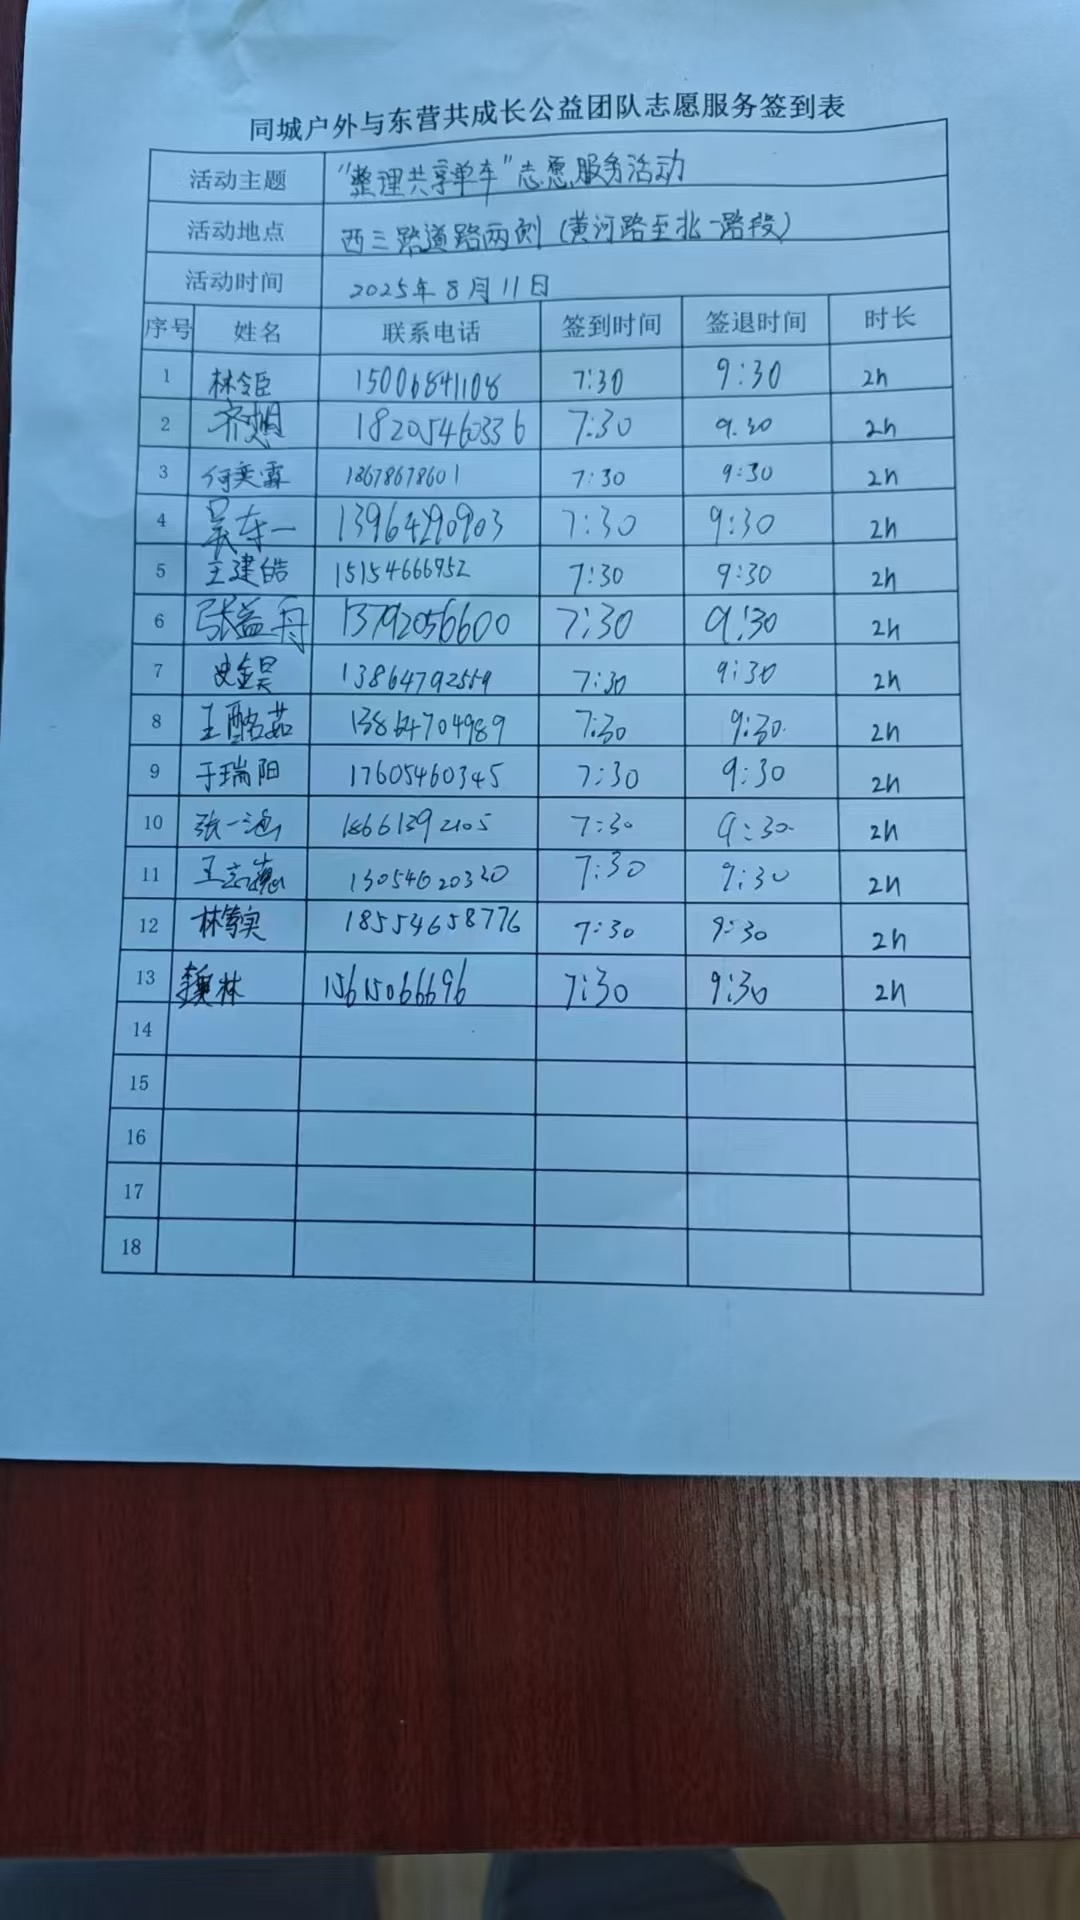 同城户外与东营共成长公益团队志愿服务签到表
活动主题 "整理共享单车"志愿服务活动
活动地点 西三路道路两侧(黄河路至北一路段)
活动时间 2025年8月11日
序号 姓名 联系电话 签到时间 签退时间 时长
1 林令臣 15006841108 7:30 9:30 2h
2 齐想 18205460336 7:30 9:30 2h
3 何奕霖 18678678601 7:30 9:30 2h
4 吴东一 13964290903 7:30 9:30 2h
5 王建皓 15154666952 7:30 9:30 2h
6 张益舟 13792056600 7:30 9:30 2h
7 史金昊 13864792559 7:30 9:30 2h
8 王酩茹 13864704989 7:30 9:30 2h
9 于瑞阳 17605460345 7:30 9:30 2h
10 张一涵 18661392105 7:30 9:30 2h
11 王志 13054620320 7:30 9:30 2h
12 林 18554658776 7:30 9:30 2h
13 林 15615066696 7:30 9:30 2h
14
15
16
17
18